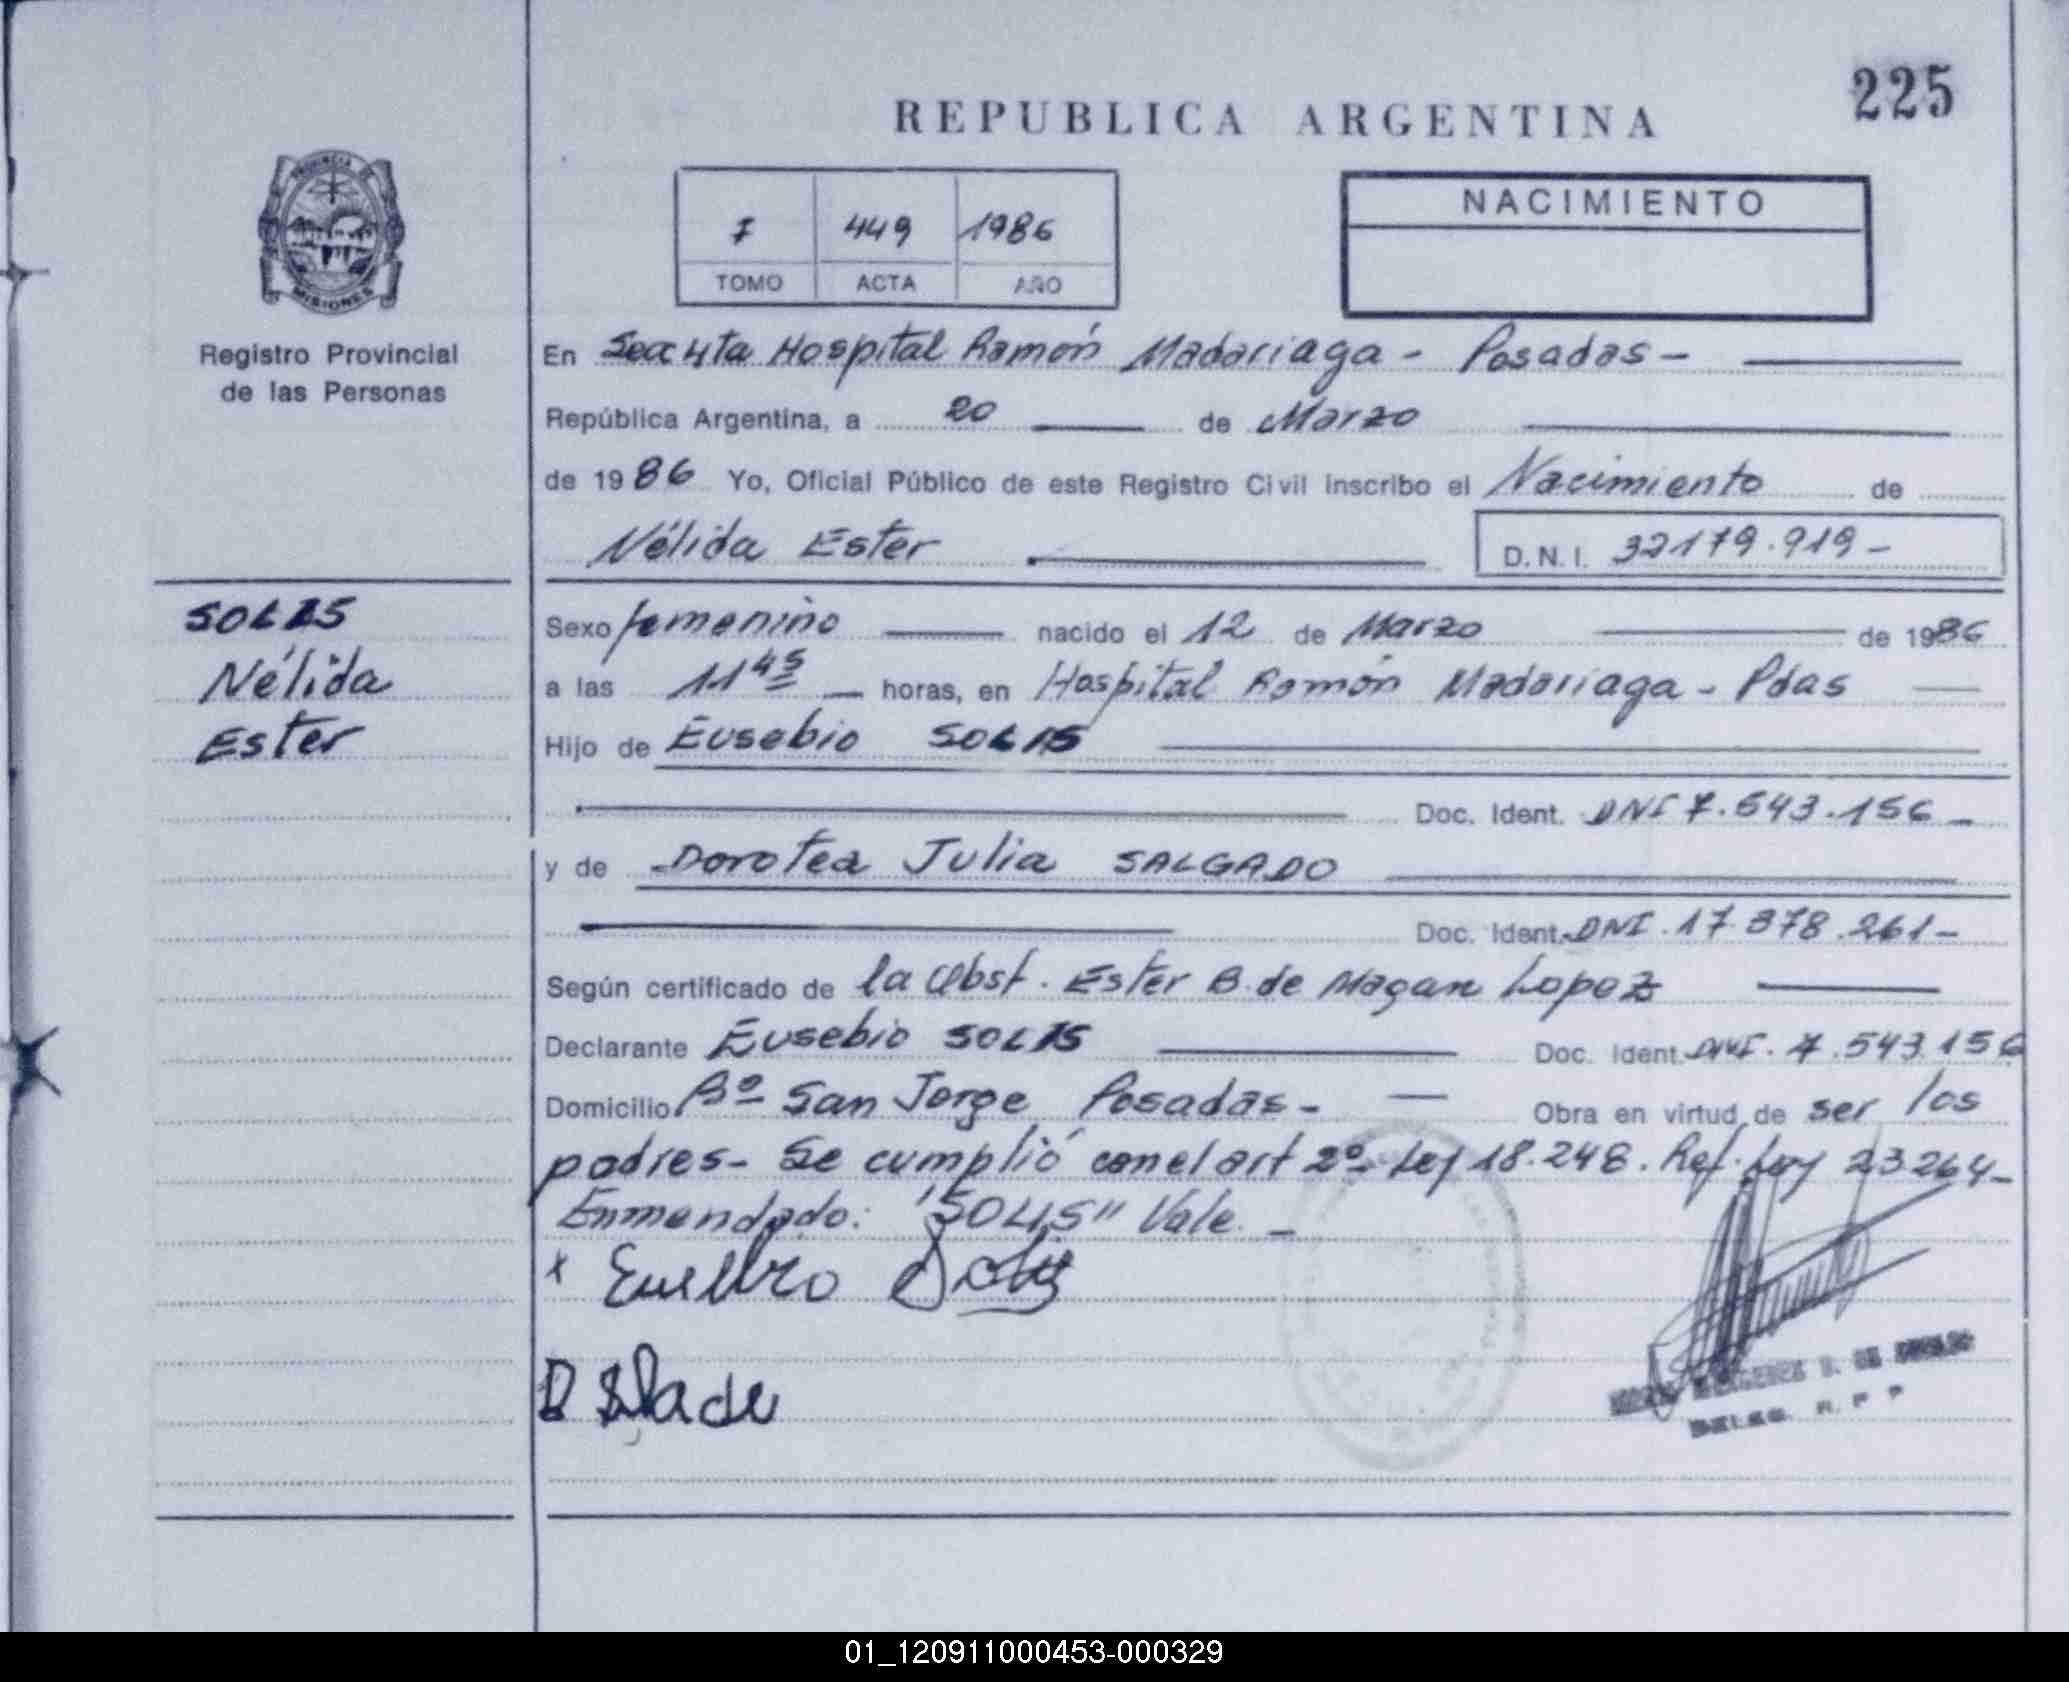 225
REPUBLICA ARGENTINA
PROVINCIA DE
MISIONES
Registro Provincial
de las Personas
7 449 1986
TOMO ACTA AÑO
NACIMIENTO
En Secc 4ta Hospital Ramón Madariaga - Posadas -
República Argentina, a 20 de Marzo
de 1986 Yo, Oficial Público de este Registro Civil inscribo el Nacimiento de
Nélida Ester D.N.I. 32179.919-
SOLIS
Nélida
Ester
Sexo femenino nacido el 12 de Marzo de 1986
a las 11 45 horas, en Hospital Ramón Madariaga - Pdas
Hijo de Eusebio SOLIS
Doc. Ident. DNI 7.543.156-
y de Dorotea Julia SALGADO
Doc. Ident. DNI. 17.378.261-
Según certificado de la Obst. Ester B. de Magan Lopez
Declarante Eusebio SOLIS Doc. Ident. DNI. 7.543.156
Domicilio Bº San Jorge Posadas - Obra en virtud de ser los
padres- Se cumplió con el art 2º Ley 18.248. Ref. Ley 23264-
Enmendado: "SOLIS" Vale. -
x Eusebio Solis
DELEG. R. P. P
01_120911000453-000329